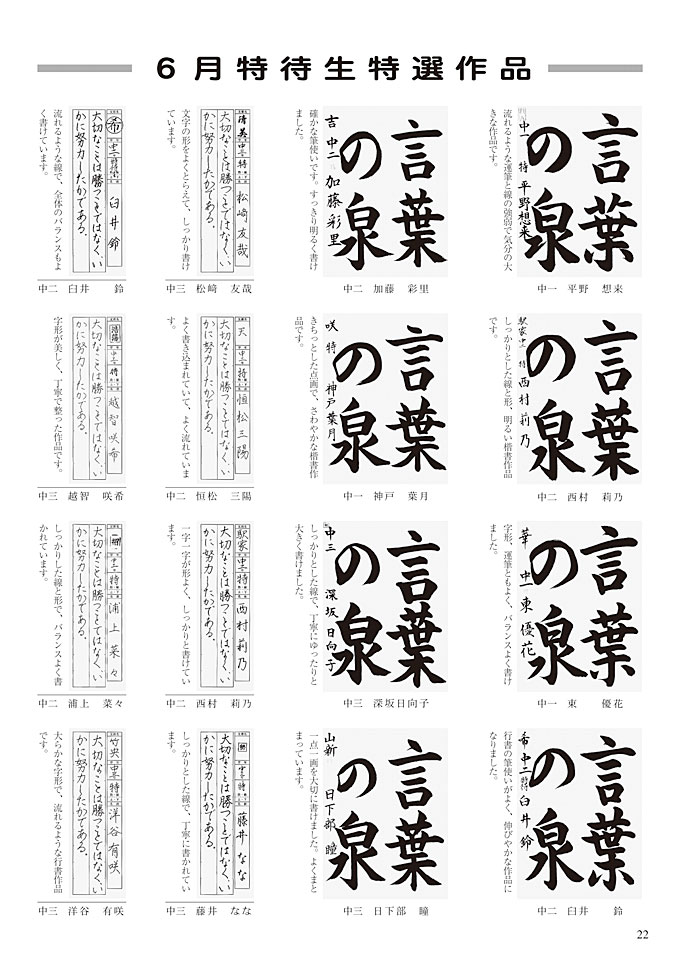 6月特待生特選作品
言葉
の泉
中一 特 平野想来
流れるような運筆と線の強弱で気分の大
きな作品です。
中一 平野 想来
言葉
の泉
吉 中二 加藤彩里
確かな筆使いです。すっきり明るく書け
ました。
中二 加藤 彩里
大切なことは勝つことではなく、い
かに努力したかである。
清美 中三 特 松崎友哉
文字の形をよくとらえて、しっかり書け
ています。
中三 松﨑 友哉
希 中二 臼井鈴
大切なことは勝つことではなく、い
かに努力したかである。
流れるような線で、全体のバランスもよ
く書けています。
中二 臼井 鈴
言葉
の泉
駅家 中二 特 西村莉乃
しっかりとした線と形、明るい楷書作品
です。
中二 西村 莉乃
言葉
の泉
咲 特 神戸葉月
きちっとした点画で、さわやかな楷書作
品です。
中一 神戸 葉月
天 中二 特 恒松三陽
大切なことは勝つことではなく、い
かに努力したかである。
よく書き込まれていて、よく流れていま
す。
中二 恒松 三陽
中三 特 越智咲希
大切なことは勝つことではなく、い
かに努力したかである。
字形が美しく、丁寧で整った作品です。
中三 越智 咲希
言葉
の泉
華 中一 東優花
字形、運筆ともよく、バランスよく書け
ました。
中一 東 優花
言葉
の泉
中三 深坂日向子
しっかりとした線で、丁寧にゆったりと
大きく書けました。
中三 深坂日向子
駅家 中二 特 西村莉乃
大切なことは勝つことではなく、い
かに努力したかである。
一字一字が形よく、しっかりと書けてい
ます。
中二 西村 莉乃
中二 特 浦上菜々
大切なことは勝つことではなく、い
かに努力したかである。
しっかりした線と形で、バランスよく書
かれています。
中二 浦上 菜々
言葉
の泉
希 中二 臼井鈴
行書の筆使いがよく、伸びやかな作品に
なりました。
中二 臼井 鈴
言葉
の泉
山新 日下部瞳
一点一画を大切に書けました。よくまと
まっています。
中三 日下部 瞳
中三 特 藤井なな
大切なことは勝つことではなく、い
かに努力したかである。
しっかりとした線で、丁寧に書かれてい
ます。
中三 藤井 なな
竹央 中三 特 洋谷有咲
大切なことは勝つことではなく、い
かに努力したかである。
大らかな字形で、流れるような行書作品
です。
中三 洋谷 有咲
22